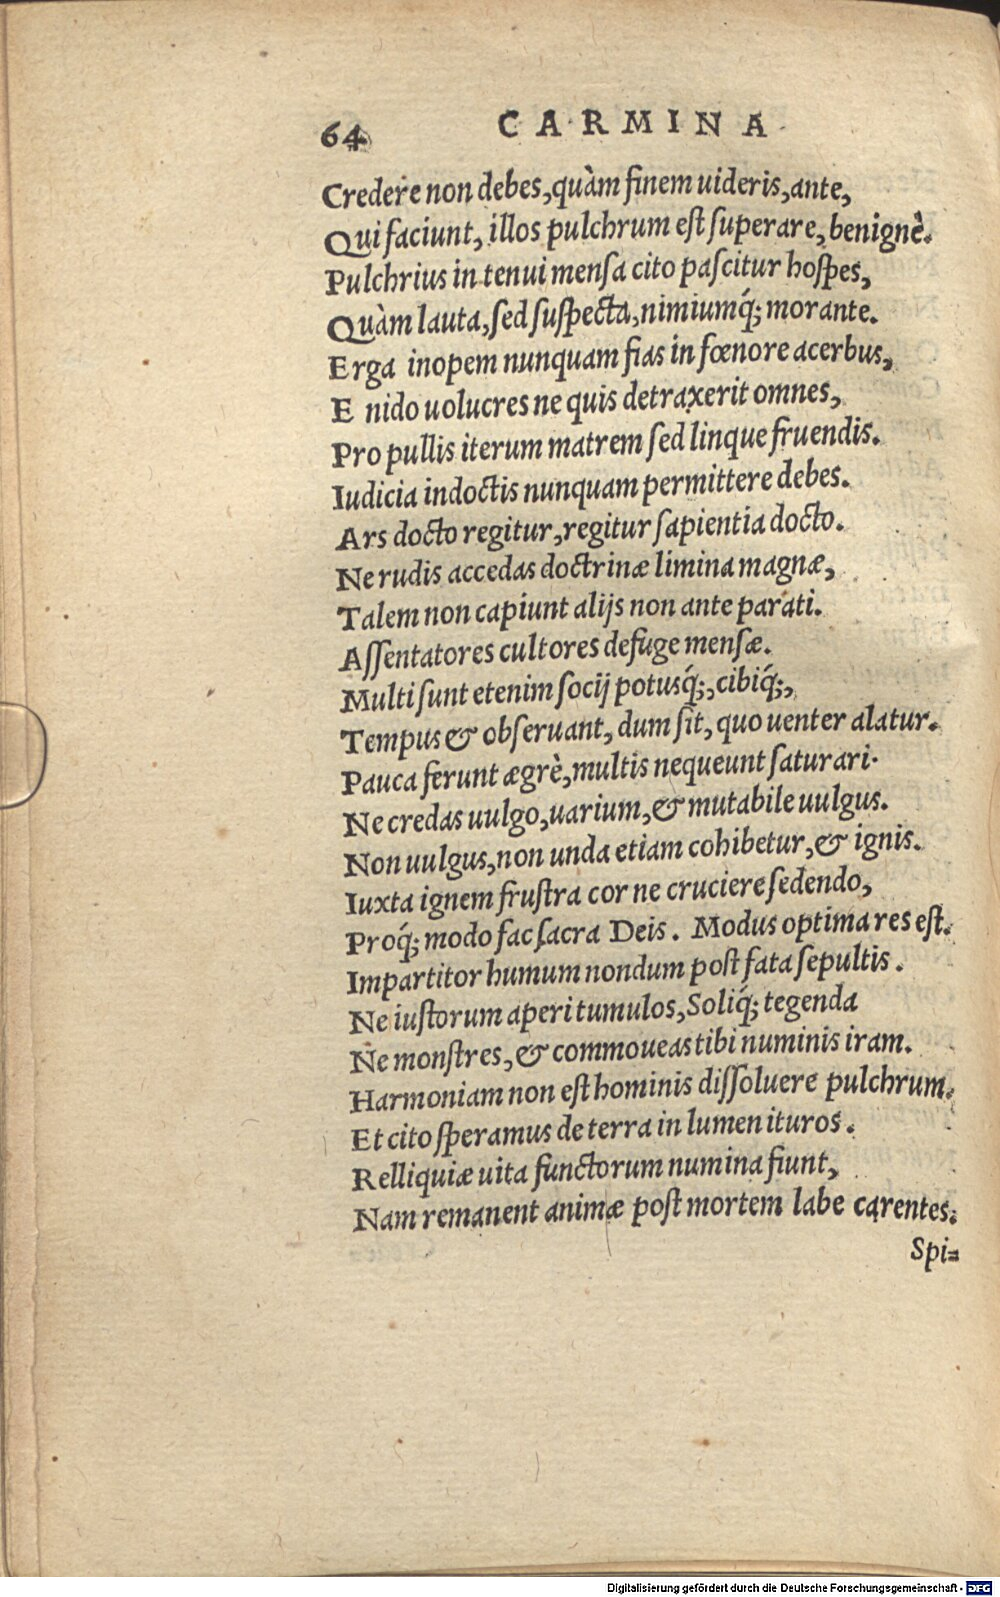 64 CARMINA
Credere non debes, quàm finem uideris, ante,
Qui faciunt, illos pulchrum est superare, benignè.
Pulchrius in tenui mensa cito pascitur hospes,
Quàm lauta, sed suspecta, nimiumq́; morante.
Erga inopem nunquam fias in fœnore acerbus,
E nido uolucres ne quis detraxerit omnes,
Pro pullis iterum matrem sed linque fruendis.
Iudicia indoctis nunquam permittere debes.
Ars docto regitur, regitur sapientia docto.
Ne rudis accedas doctrinæ limina magnæ,
Talem non capiunt alijs non ante parati.
Assentatores cultores defuge mensæ.
Multi sunt etenim socij potusq́;, cibiq́;,
Tempus & obseruant, dum sit, quo uenter alatur.
Pauca ferunt ægrè, multis nequeunt saturari.
Ne credas uulgo, uarium, & mutabile uulgus.
Non uulgus, non unda etiam cohibetur, & ignis.
Iuxta ignem frustra cor ne cruciere sedendo,
Proq́; modo fac sacra Deis. Modus optima res est.
Impartitor humum nondum post fata sepultis.
Ne iustorum aperi tumulos, Soliq́; tegenda
Ne monstres, & commoueas tibi numinis iram.
Harmoniam non est hominis dissoluere pulchrum.
Et cito speramus de terra in lumen ituros.
Relliquiæ uita functorum numina fiunt,
Nam remanent animæ post mortem labe carentes.
Spi=
Digitalisierung gefördert durch die Deutsche Forschungsgemeinschaft - DFG